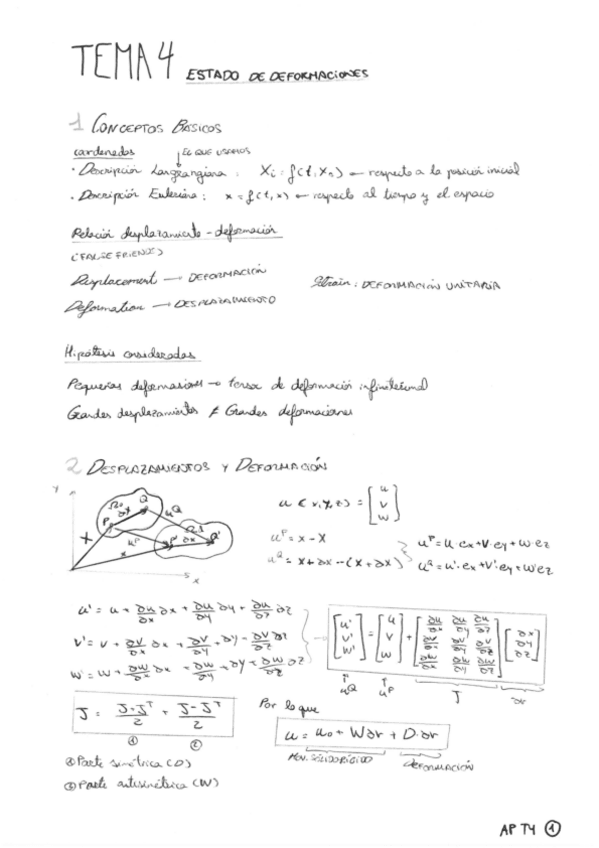 TEMA 4 ESTADO DE DEFORMACIONES
1 CONCEPTOS BÁSICOS
coordenadas EL QUE USAMOS
· Descripción Langrangiana : Xi = f(t, X0) ← respecto a la posición inicial
· Descripción Euleriana : x = f(t, x) ← respecto al tiempo y el espacio
Relación desplazamiento - deformación
(FALSE FRIENDS)
Displacement → DEFORMACIÓN Strain : DEFORMACIÓN UNITARIA
Deformation → DESPLAZAMIENTO
Hipótesis consideradas
Pequeñas deformaciones → tensor de deformación infinitesimal
Grandes desplazamientos ≠ Grandes deformaciones
2 DESPLAZAMIENTOS Y DEFORMACIÓN
y Ω0 Q uQ Q'
P ∂X X uP P' ∂x x
x
u (x,y,z) = [u v w]
uP = x - X uP = u·ex + v·ey + w·ez
uQ = x + ∂x - (X + ∂X) uQ = u'·ex + v'·ey + w'ez
u' = u + ∂u/∂x ∂x + ∂u/∂y ∂y + ∂u/∂z ∂z
v' = v + ∂v/∂x ∂x + ∂v/∂y ∂y + ∂v/∂z ∂z
w' = w + ∂w/∂x ∂x + ∂w/∂y ∂y + ∂w/∂z ∂z
[u' v' w'] = [u v w] + [∂u/∂x ∂u/∂y ∂u/∂z ∂v/∂x ∂v/∂y ∂v/∂z ∂w/∂x ∂w/∂y ∂w/∂z] [∂x ∂y ∂z]
uQ uP J ∂r
J = J+JT/2 + J-JT/2
① ②
Por lo que
u = u0 + W∂r + D·∂r
MOV. SÓLIDO RÍGIDO DEFORMACIÓN
① Parte simétrica (D)
② Parte antisimétrica (W)
AP T4 ①